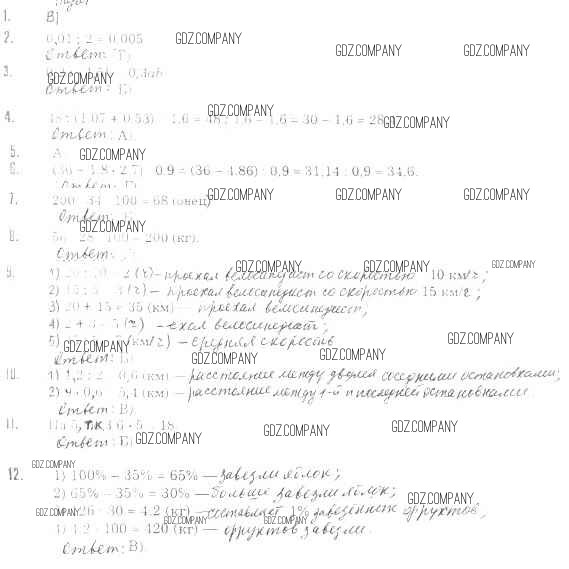 1. В)
2. 0,01 : 2 = 0,005
GDZ.COMPANY
Ответ: Г)
GDZ.COMPANY GDZ.COMPANY
3. 0,3ab
GDZ.COMPANY
Ответ:
GDZ.COMPANY
4. 48 : (1,07 + 0,53) – 1,6 = 48 : 1,6 – 1,6 = 30 – 1,6 = 28,
GDZ.COMPANY
Ответ: А)
5. А
GDZ.COMPANY
6. (36 – 1,8 · 2,7) : 0,9 = (36 – 4,86) : 0,9 = 31,14 : 0,9 = 34,6.
Ответ:
7. 200 · 34 : 100 = 68 (овец)
GDZ.COMPANY GDZ.COMPANY GDZ.COMPANY
Ответ:
GDZ.COMPANY
8. 56 : 28 · 100 = 200 (кг).
Ответ:
GDZ.COMPANY GDZ.COMPANY GDZ.COMPANY
9. 1) 20 : 10 = 2 (ч) – проехал велосипедист со скоростью 10 км/ч;
2) (ч) – проехал велосипедист со скоростью 15 км/ч;
3) 20 + 15 = 35 (км) — проехал велосипедист;
4) (ч) – ехал велосипедист;
5) (км/ч) – средняя скорость
GDZ.COMPANY GDZ.COMPANY
Ответ:
GDZ.COMPANY GDZ.COMPANY
10. 1) 1,2 : 2 = 0,6 (км) — расстояние между двумя соседними остановками;
2) 9 · 0,6 = 5,4 (км) – расстояние между 1-й и последней остановками.
Ответ: В).
11. На 5, т.к. 3,6 · 5 = 18
GDZ.COMPANY GDZ.COMPANY
Ответ:
GDZ.COMPANY
GDZ.COMPANY
12. 1) 100% – 35% = 65% — завезли яблок;
2) 65% – 35% = 30% — больше завезли яблок;
GDZ.COMPANY
GDZ.COMPANY 126 : 30 = 4,2 (кг) — составляет 1% завезённых фруктов,
GDZ.COMPANY GDZ.COMPANY
4) 4,2 · 100 = 420 (кг) — фруктов завезли.
Ответ: В).